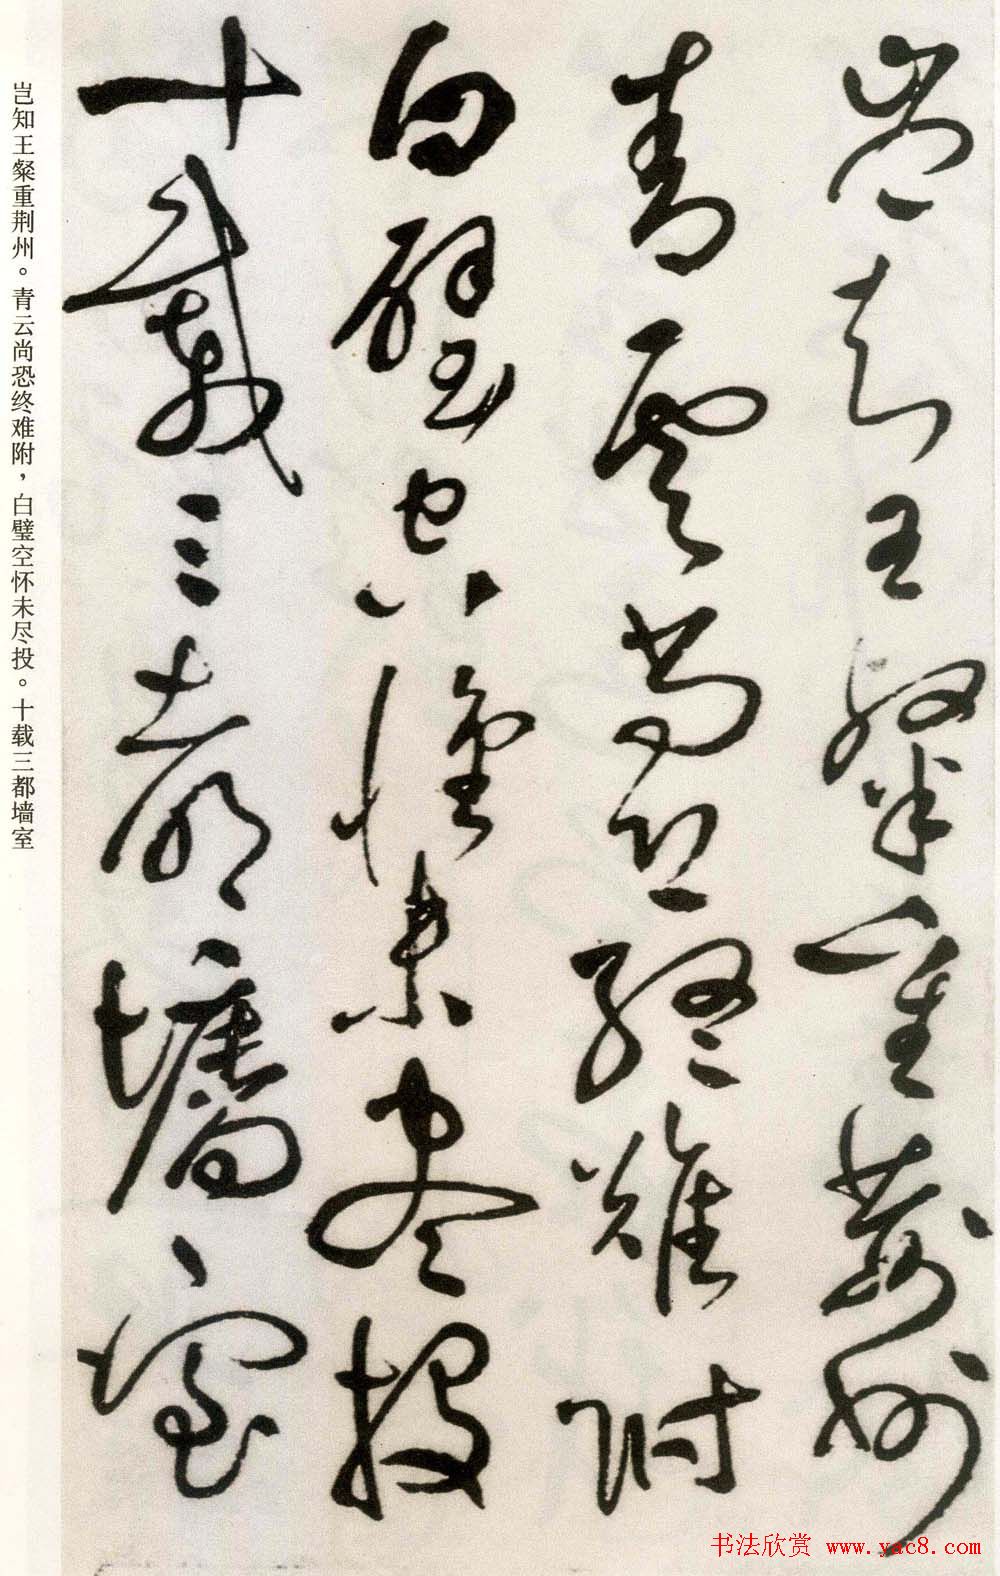 豈知王粲重荊州
青雲尚恐終難附
白璧空懷未盡投
十載三都墻室
岂知王粲重荆州。青云尚恐终难附，白璧空怀未尽投。十载三都墙室
书法欣赏 www.yac8.com